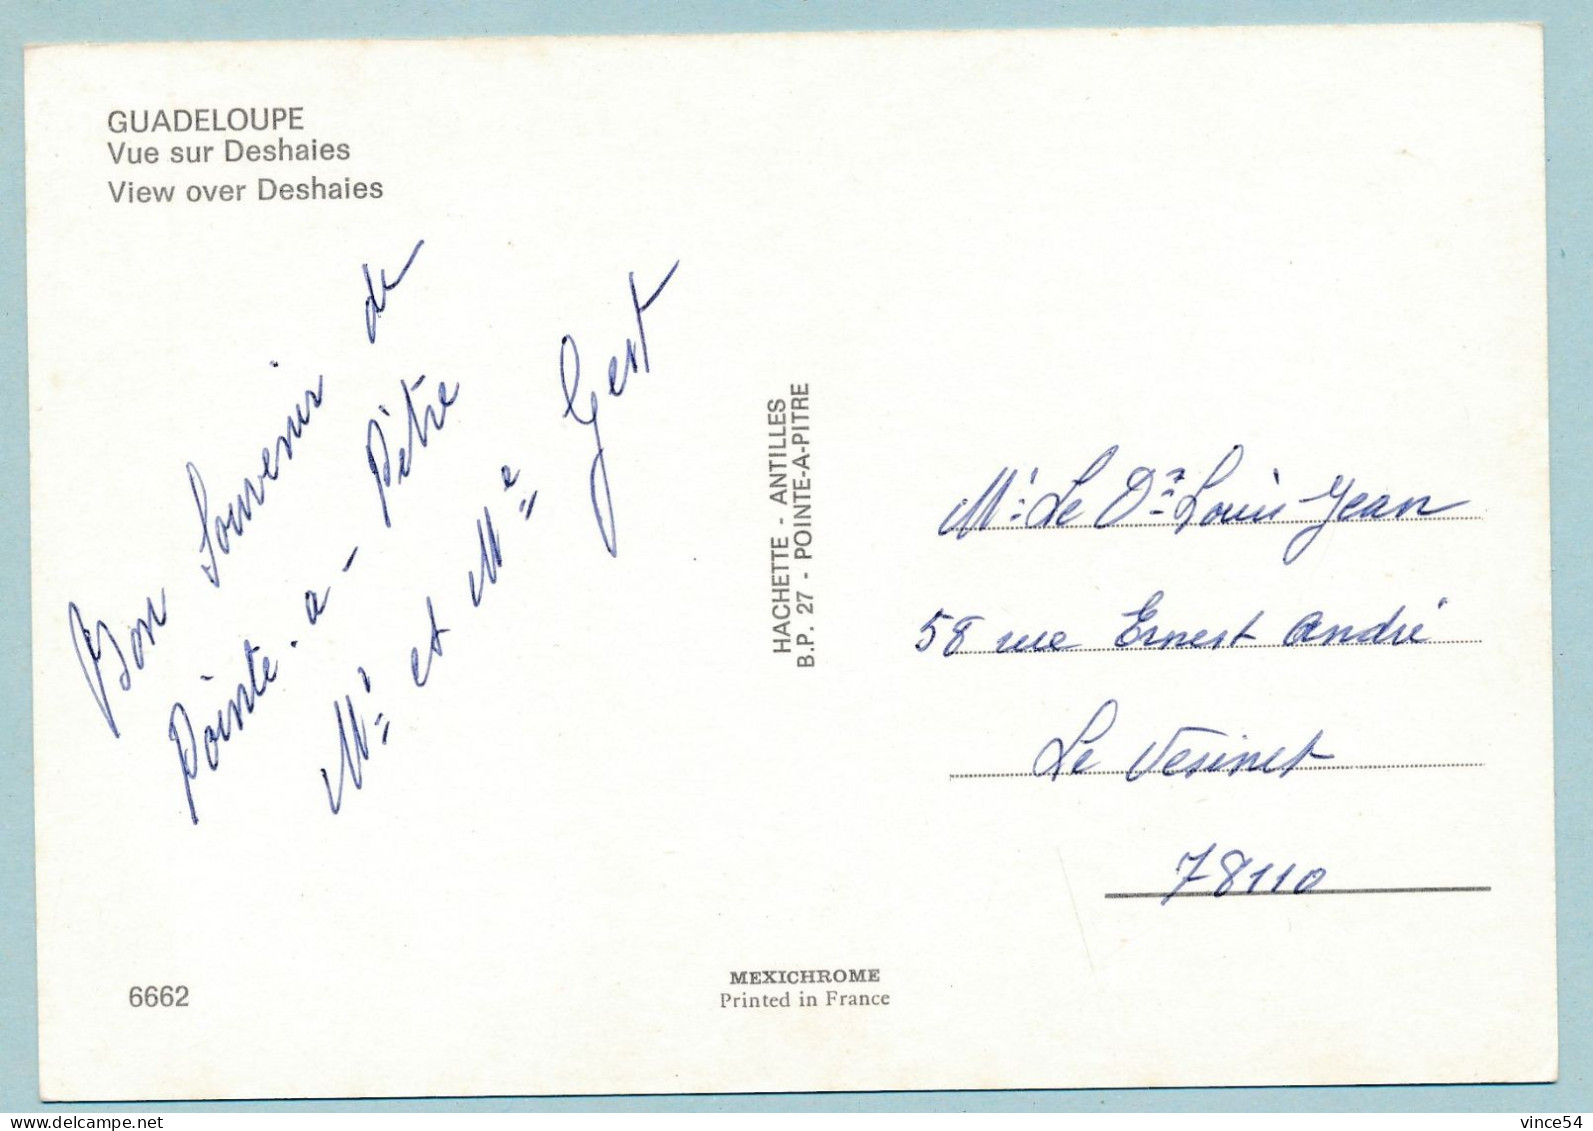 GUADELOUPE
Vue sur Deshaies
View over Deshaies
Bon Souvenir de
Pointe-a-Pitre
Mr et Me Gest
HACHETTE - ANTILLES
B.P. 27 - POINTE-A-PITRE
Mr Le Dr Louis Jean
58 rue Ernest André
Le Vesinet
78110
6662
MEXICHROME
Printed in France
www.delcampe.net
vince54